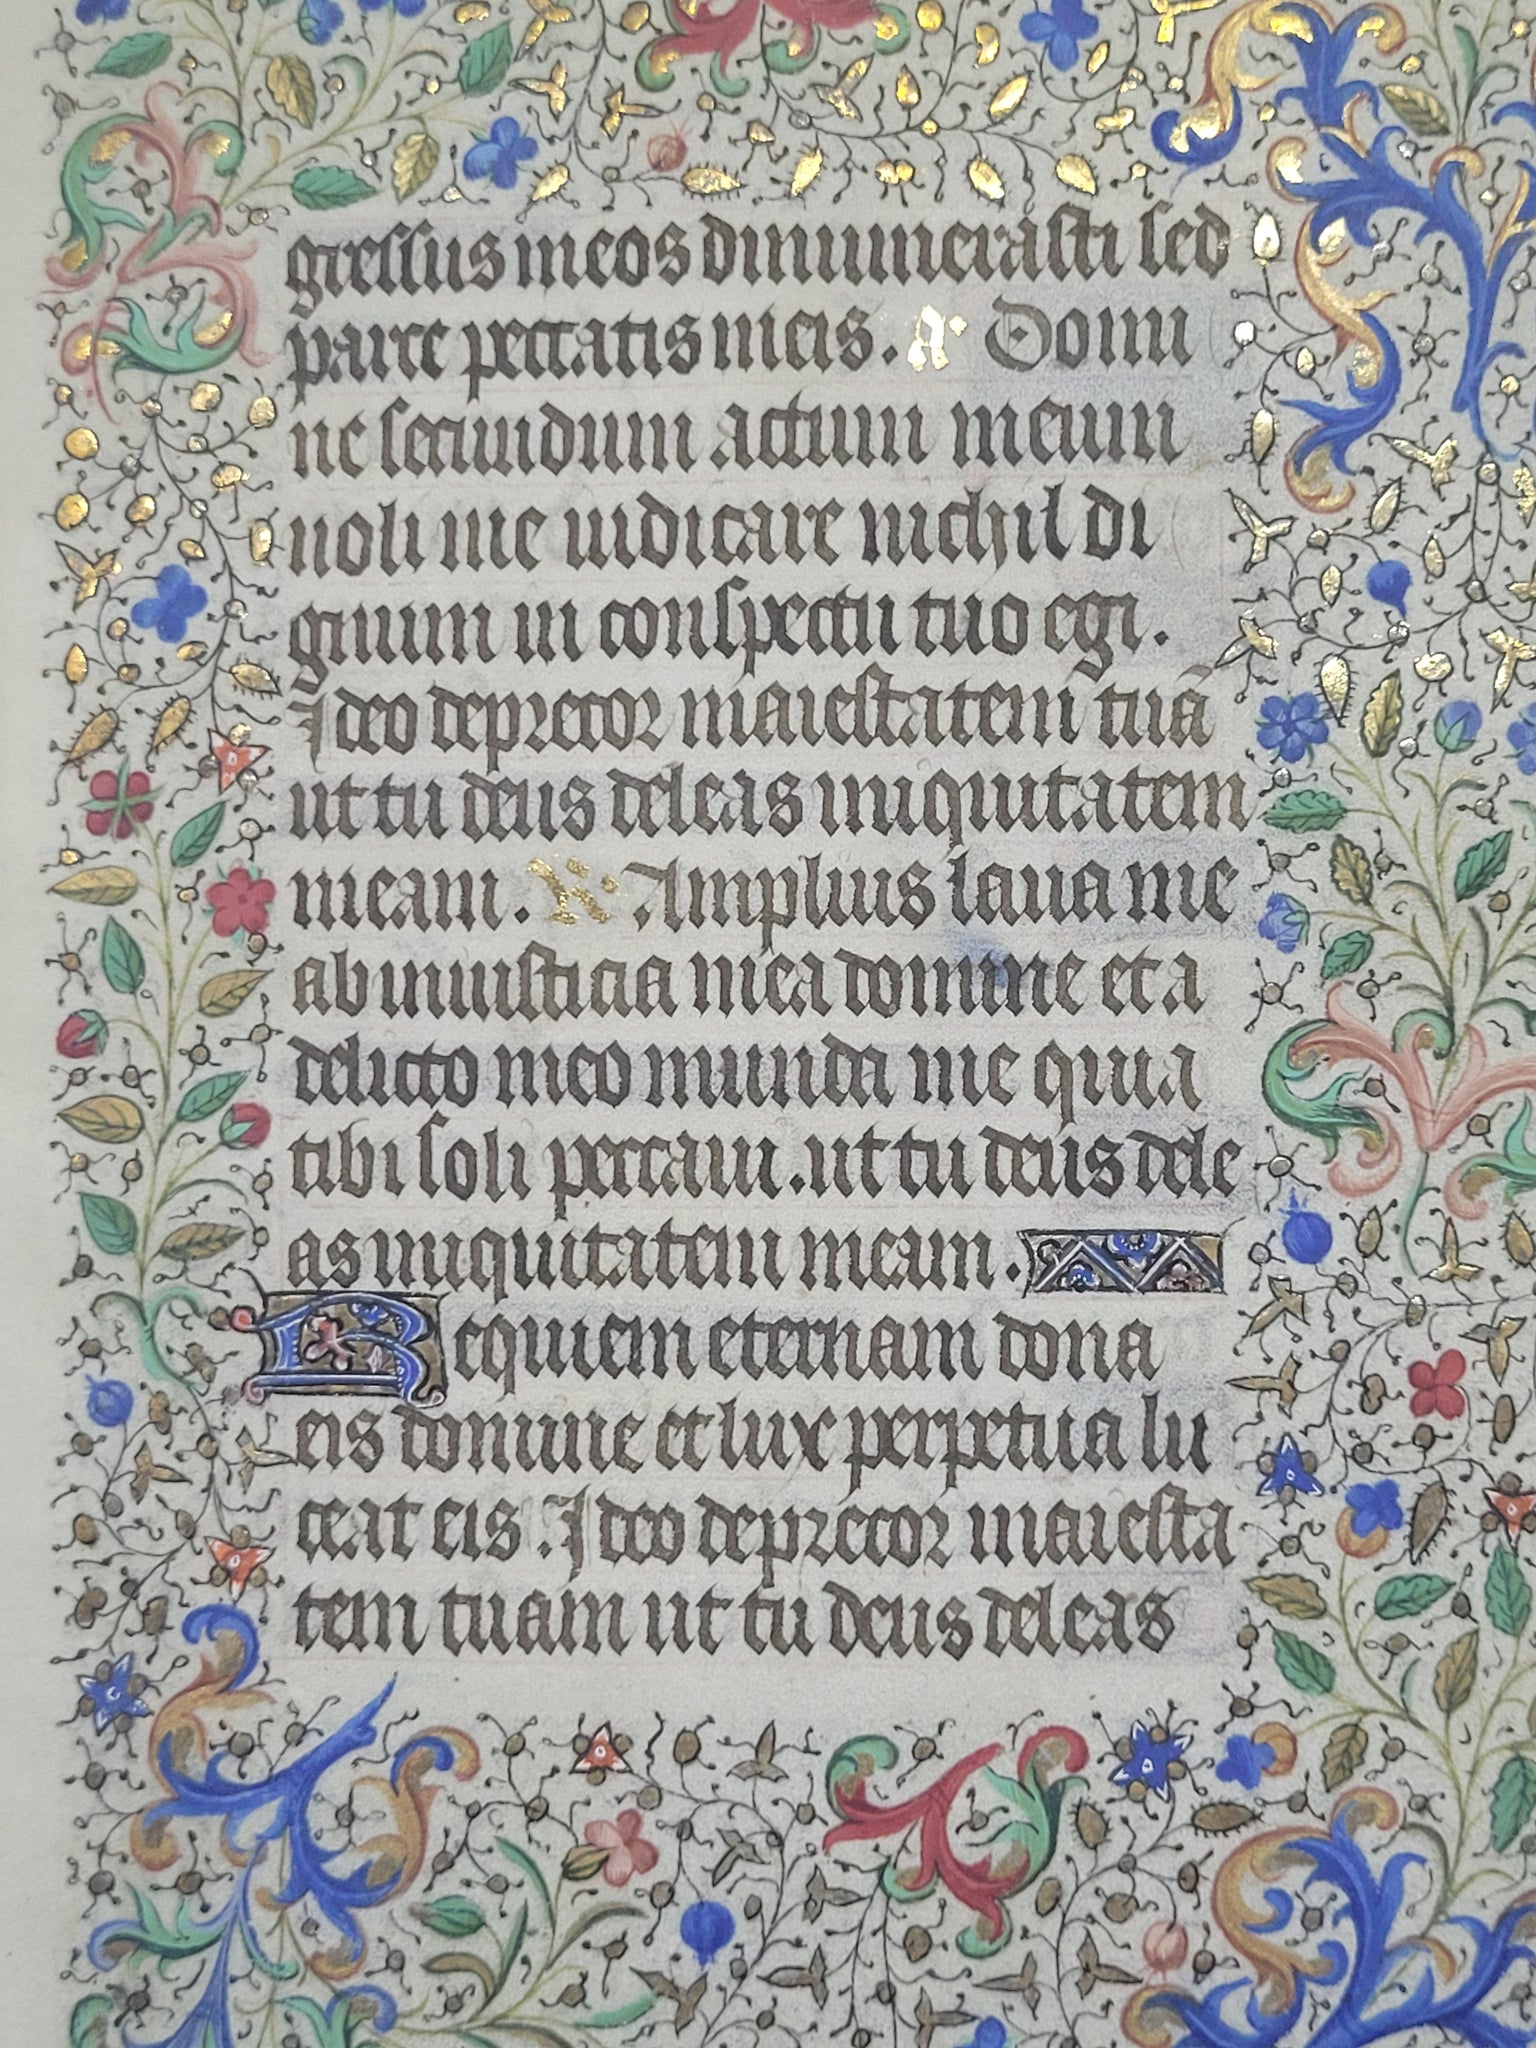 gressus meos dinumerasti sed
parce peccatis meis. R. Domi
ne secundum actum meum
noli me iudicare nichil di
gnum in conspectu tuo egi.
Ideo deprecor maiestatem tuā
ut tu deus deleas iniquitatem
meam. V. Amplius laua me
ab iniusticia mea domine et a
delicto meo munda me quia
tibi soli peccaui. ut tu deus dele
as iniquitatem meam.
Requiem eternam dona
eis domine et lux perpetua lu
ceat eis. Ideo deprecor maiesta
tem tuam ut tu deus deleas